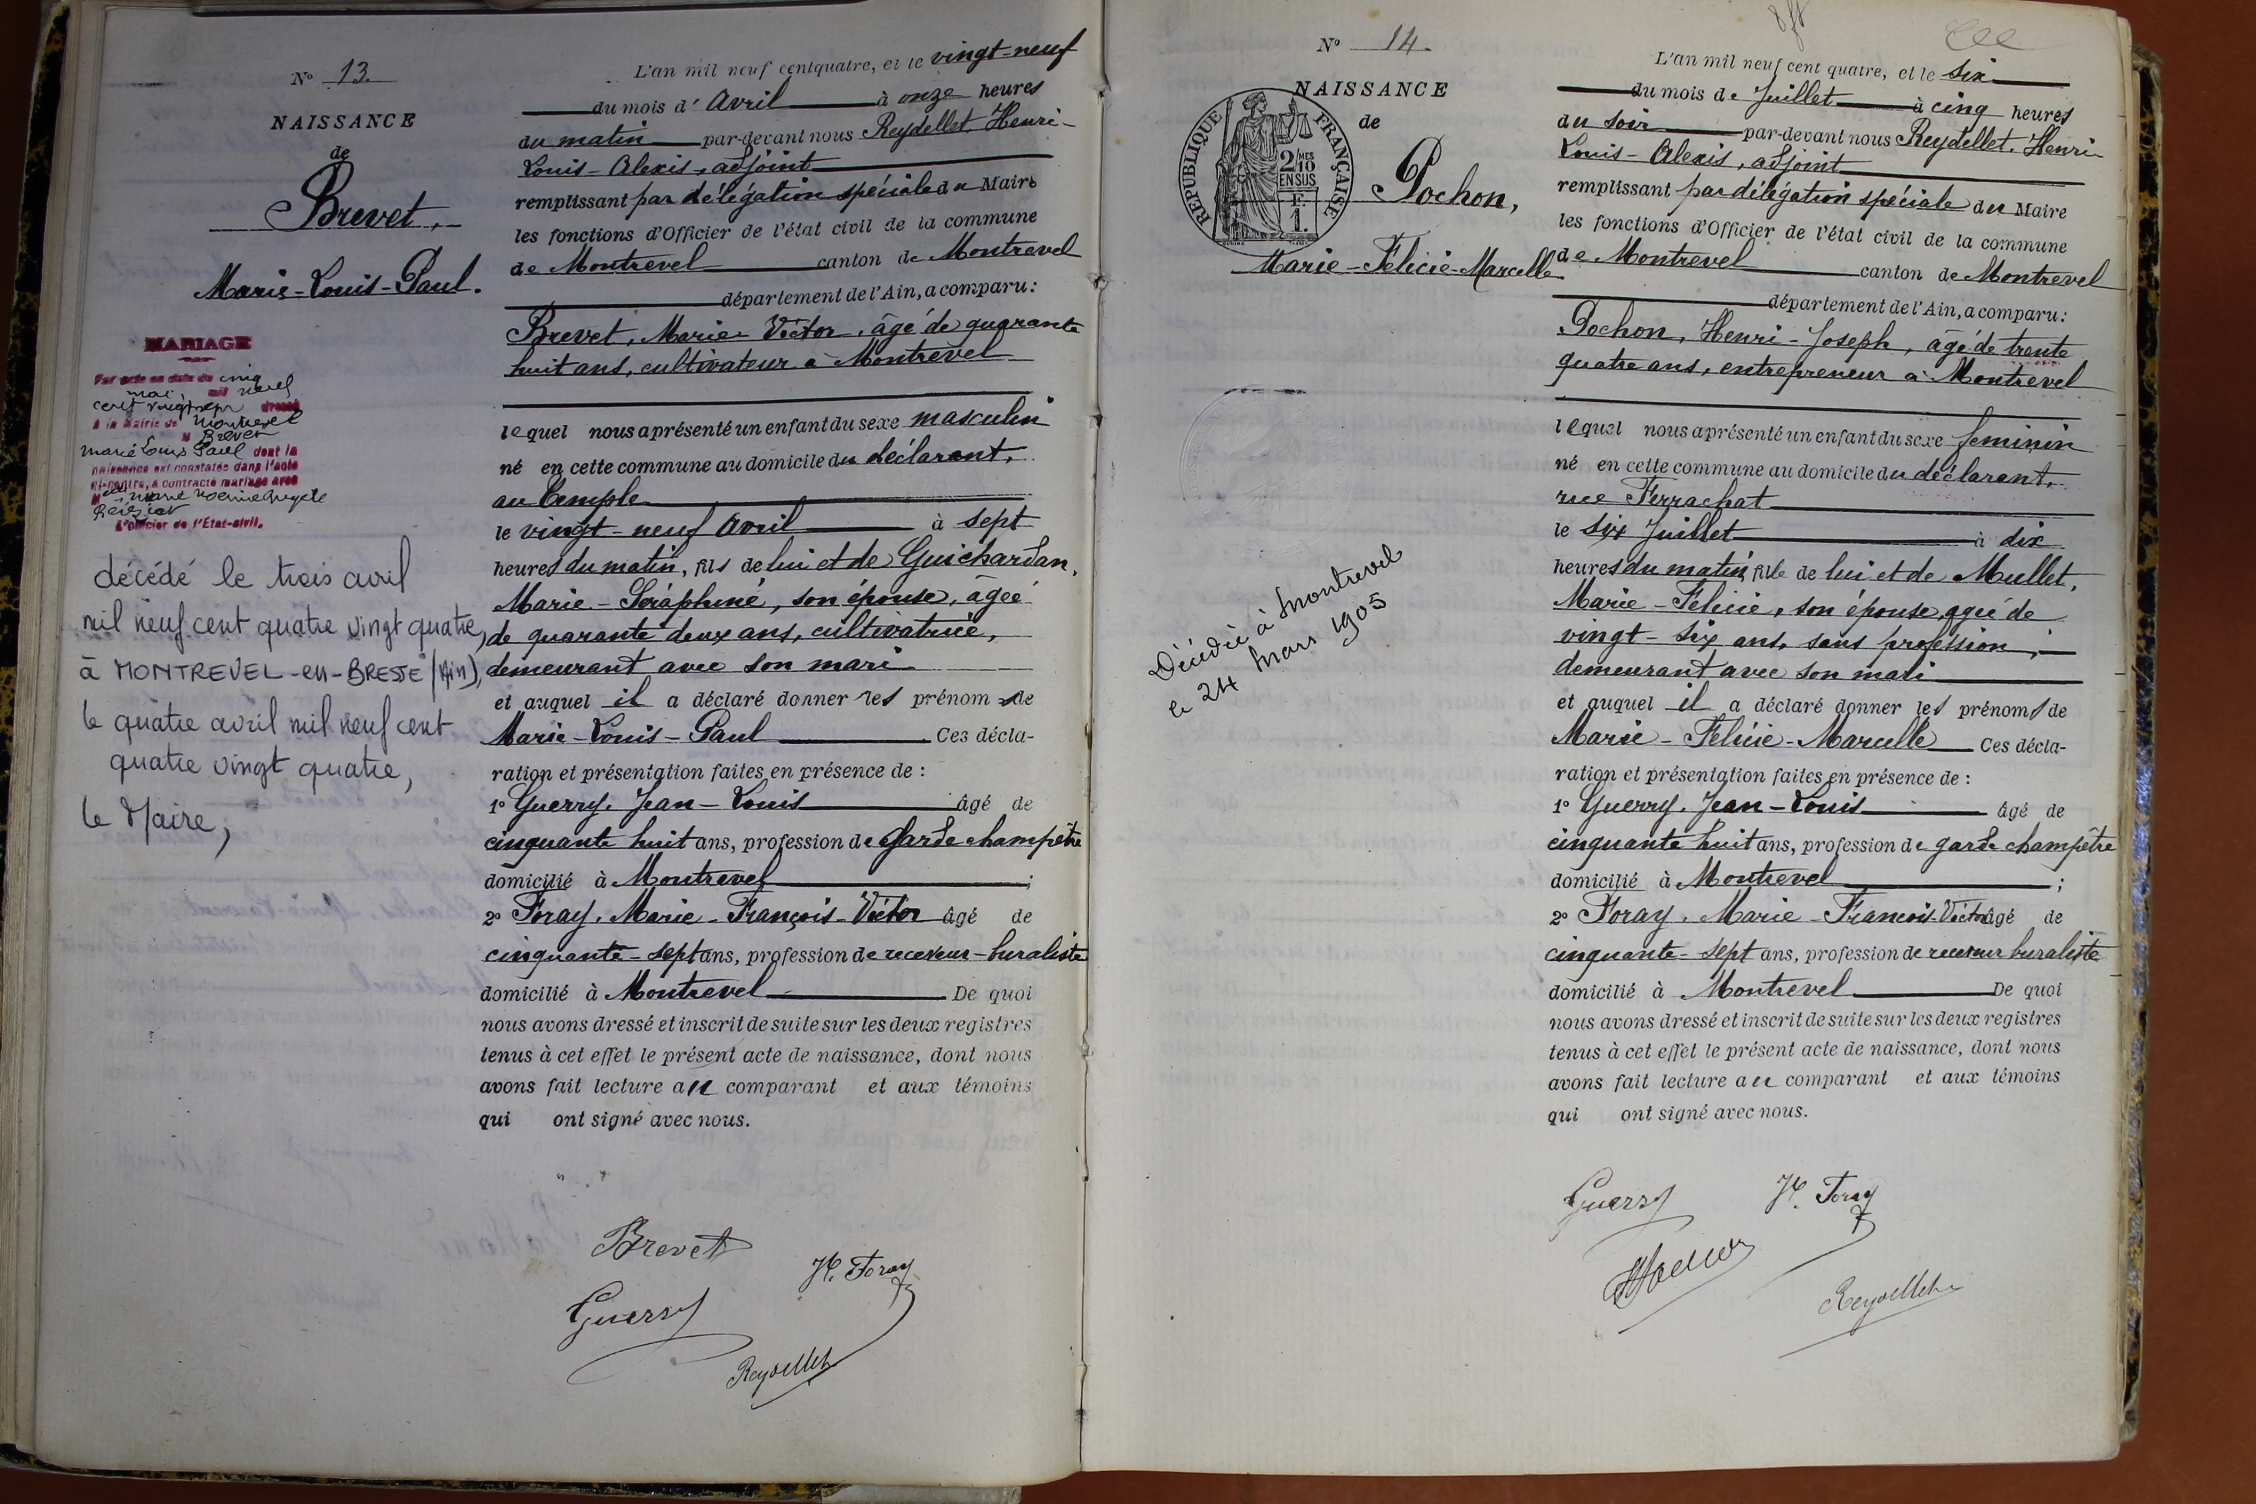 N° 13.
NAISSANCE
de
Brevet,
Marie-Louis-Paul.
MARIAGE
Par acte en date du cinq
mai, mil neuf
cent vingt sept dressé
à la Mairie de Montrevel
M Brevet
Marie Louis Paul dont la
naissance est constatée dans l'acte
ci-contre, a contracté mariage avec
Melle Marie
L'Officier de l'Etat-civil.
décédé le trois avril
mil neuf cent quatre vingt quatre,
à MONTREVEL-en-BRESSE (Ain),
le quatre avril mil neuf cent
quatre vingt quatre,
le Maire,
L'an mil neuf cent quatre, et le vingt-neuf
du mois d' Avril à onze heures
du matin par-devant nous Reydellet, Henri-
Louis-Alexis, adjoint
remplissant par délégation spéciale du Maire
les fonctions d'Officier de l'état civil de la commune
de Montrevel canton de Montrevel
département de l'Ain, a comparu:
Brevet, Marie-Victor, âgé de quarante
huit ans, cultivateur à Montrevel
lequel nous a présenté un enfant du sexe masculin
né en cette commune au domicile du déclarant,
au Temple
le vingt-neuf Avril à sept
heures du matin, fils de lui et de Guichardan,
Marie-Séraphine, son épouse, âgée
de quarante deux ans, cultivatrice,
demeurant avec son mari
et auquel il a déclaré donner les prénoms de
Marie-Louis-Paul Ces décla-
ration et présentation faites en présence de :
1° Guerry, Jean-Louis âgé de
cinquante huit ans, profession de garde champêtre
domicilié à Montrevel ;
2° Foray, Marie-François-Victor âgé de
cinquante-sept ans, profession de receveur-buraliste
domicilié à Montrevel De quoi
nous avons dressé et inscrit de suite sur les deux registres
tenus à cet effet le présent acte de naissance, dont nous
avons fait lecture au comparant et aux témoins
qui ont signé avec nous.
Brevet
Guerry
Foray
Reydellet
N° 14.
NAISSANCE
de
RÉPUBLIQUE FRANÇAISE
2/10 MES
EN SUS
F.
1.
Pochon,
Marie-Félicie-Marcelle
Décédée à Montrevel
le 24 Mars 1905
L'an mil neuf cent quatre, et le six
du mois de Juillet à cinq heures
du soir par-devant nous Reydellet, Henri-
Louis-Alexis, adjoint
remplissant par délégation spéciale du Maire
les fonctions d'Officier de l'état civil de la commune
de Montrevel canton de Montrevel
département de l'Ain, a comparu:
Pochon, Henri-Joseph, âgé de trente
quatre ans, entrepreneur à Montrevel
lequel nous a présenté un enfant du sexe féminin
né en cette commune au domicile du déclarant,
rue Ferrachat
le six Juillet à dix
heures du matin, fille de lui et de Mullet,
Marie-Félicie, son épouse, agée de
vingt-six ans, sans profession,
demeurant avec son mari
et auquel il a déclaré donner les prénoms de
Marie-Félicie-Marcelle Ces décla-
ration et présentation faites en présence de :
1° Guerry, Jean-Louis âgé de
cinquante huit ans, profession de garde champêtre
domicilié à Montrevel ;
2° Foray, Marie-François-Victor âgé de
cinquante-sept ans, profession de receveur buraliste
domicilié à Montrevel De quoi
nous avons dressé et inscrit de suite sur les deux registres
tenus à cet effet le présent acte de naissance, dont nous
avons fait lecture au comparant et aux témoins
qui ont signé avec nous.
Guerry
Foray
Reydellet